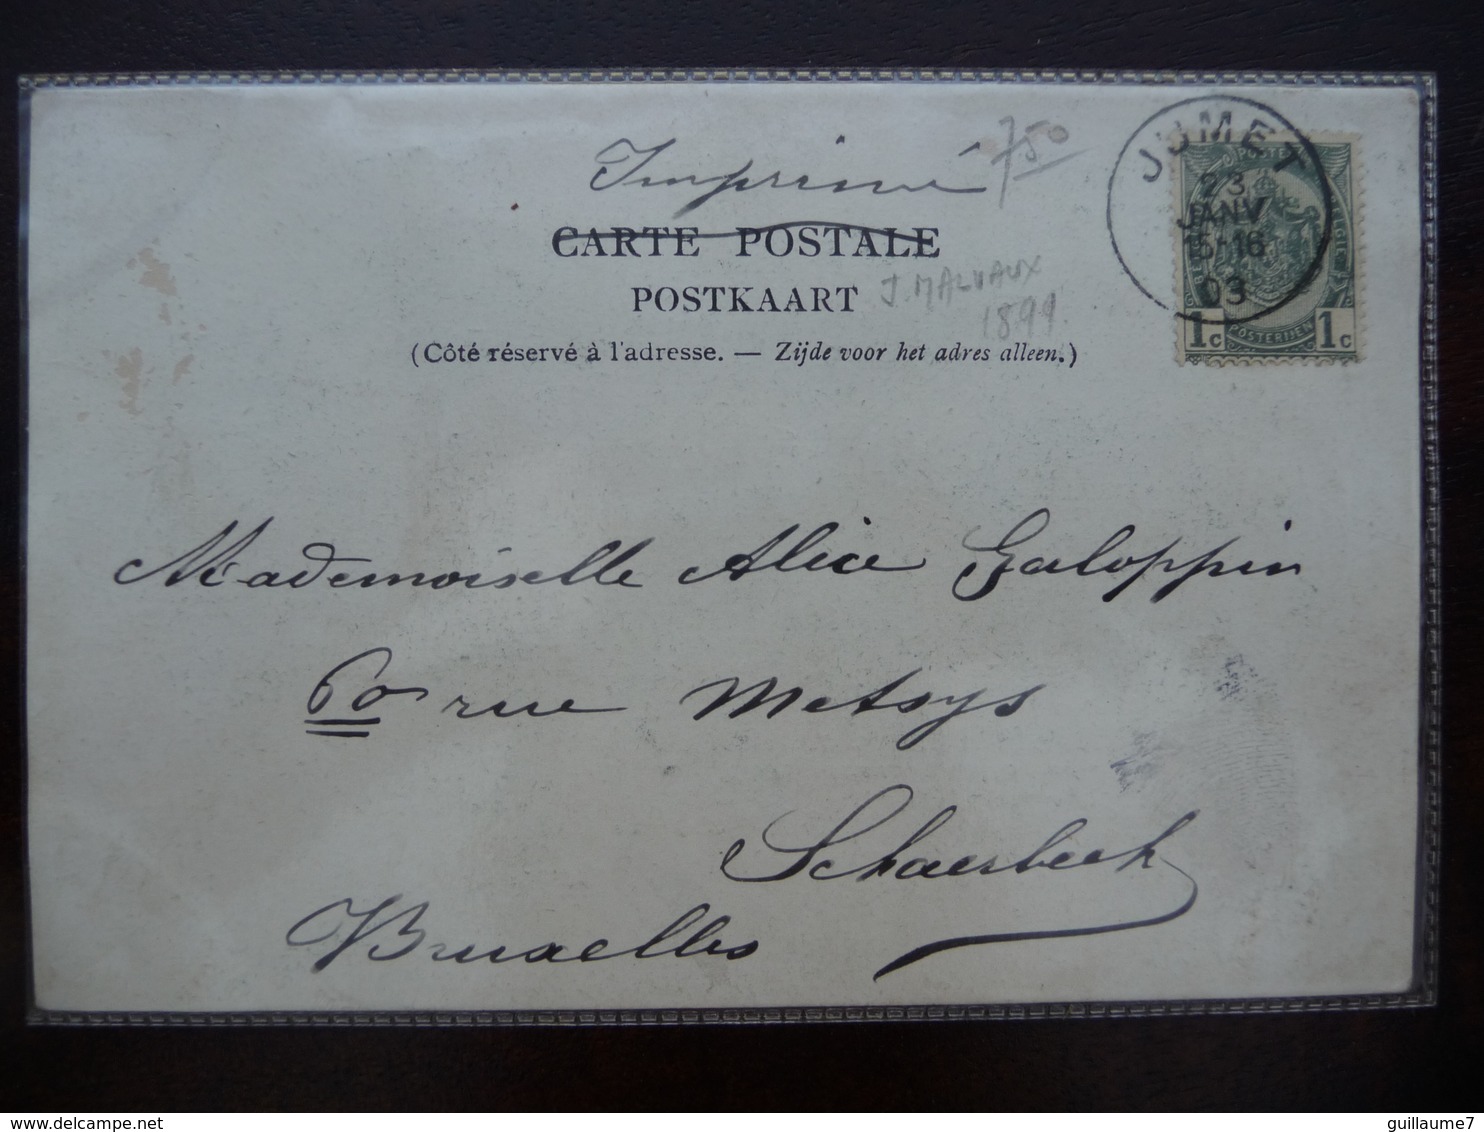 Imprimé
750
CARTE POSTALE
POSTKAART
J. MALVAUX
1899
(Côté réservé à l'adresse. — Zijde voor het adres alleen.)
JUMET
23
JANV
15-16
03
POSTERIJEN
1c 1c
Mademoiselle Alice Galoppin
60 rue Metsys
Schaerbeek
Bruxelles
delcampe.net
guillaume7